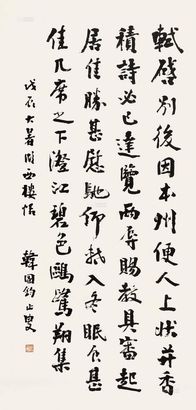 軾啓別後因本州便人上狀并香
積詩必已達覽兩辱賜教具審起
居佳勝甚慰馳仰軾入冬眠食甚
佳几席之下澄江碧色鷗鷺翔集
戊辰大暑 西樓
韓國鈞止叟